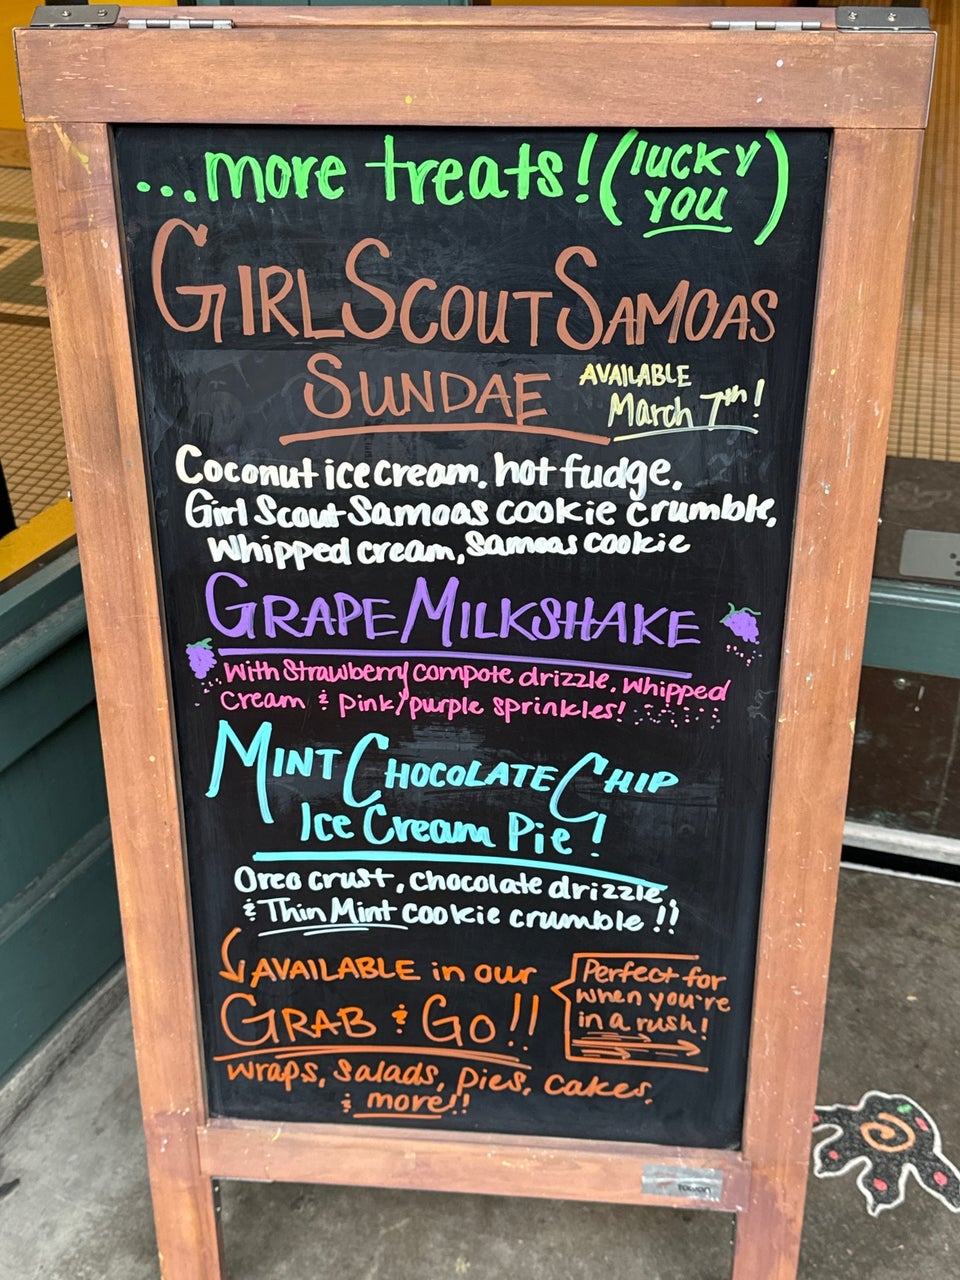 ...more treats! (lucky
you)
GIRL SCOUT SAMOAS
SUNDAE
AVAILABLE
March 7th!
Coconut ice cream, hot fudge,
Girl Scout Samoas cookie crumble,
whipped cream, Samoas cookie
GRAPE MILKSHAKE
with strawberry compote drizzle, whipped
cream & pink/purple sprinkles!
MINT CHOCOLATE CHIP
Ice Cream Pie!
Oreo crust, chocolate drizzle,
& Thin Mint cookie crumble!!
AVAILABLE in our
GRAB & GO!!
Perfect for
when you're
in a rush!
wraps, salads, pies, cakes,
& more!!